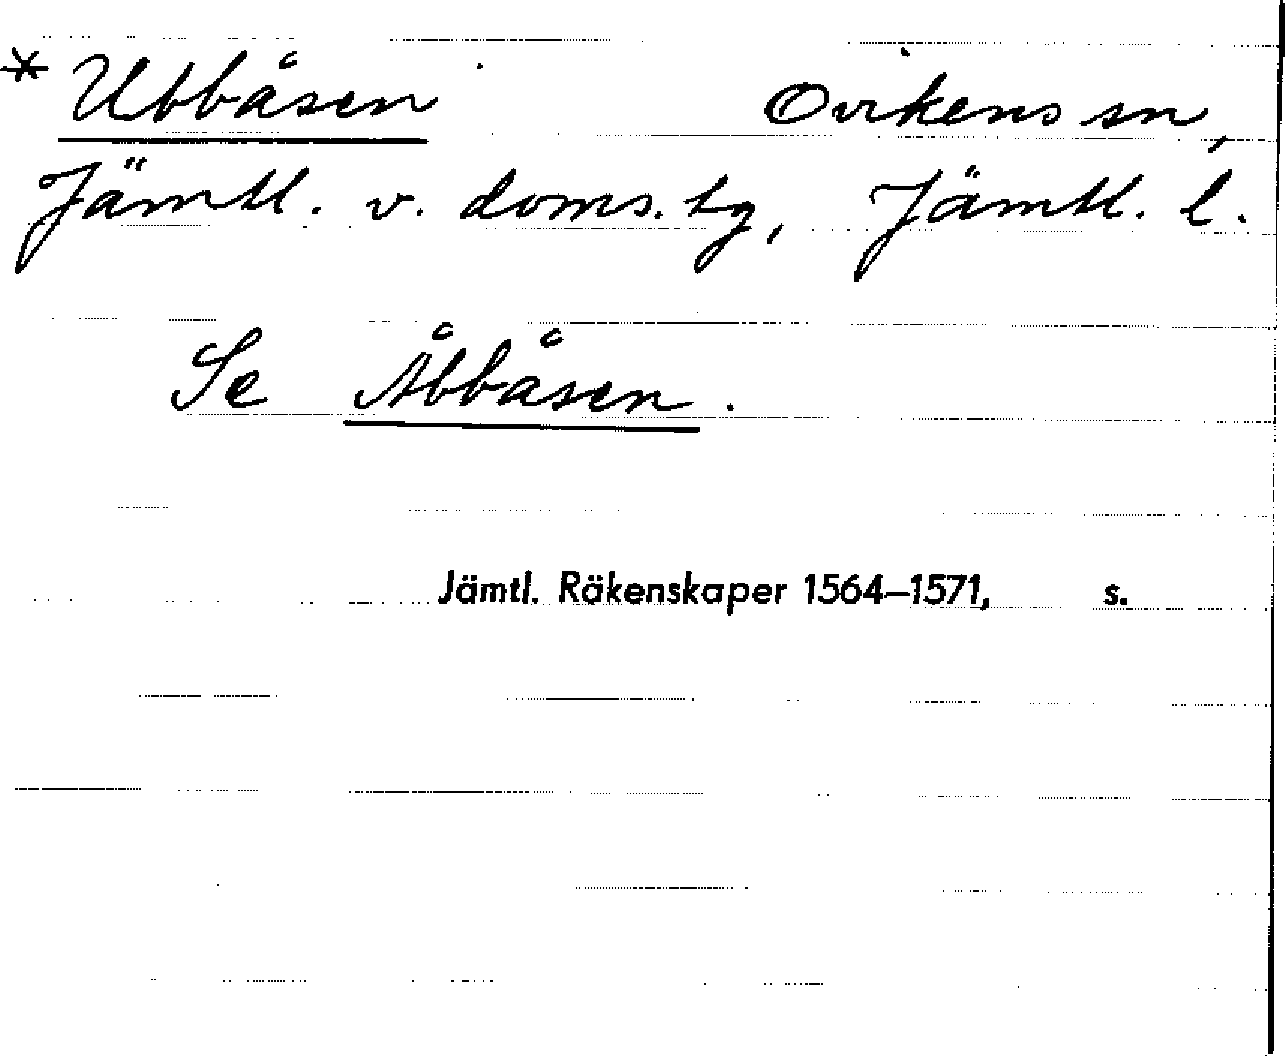 * Ubbåsen Ovikens sn,
Jämtl. v. doms. tg, Jämtl. l.
Se Åbbåsen.
Jämtl. Räkenskaper 1564–1571, s.